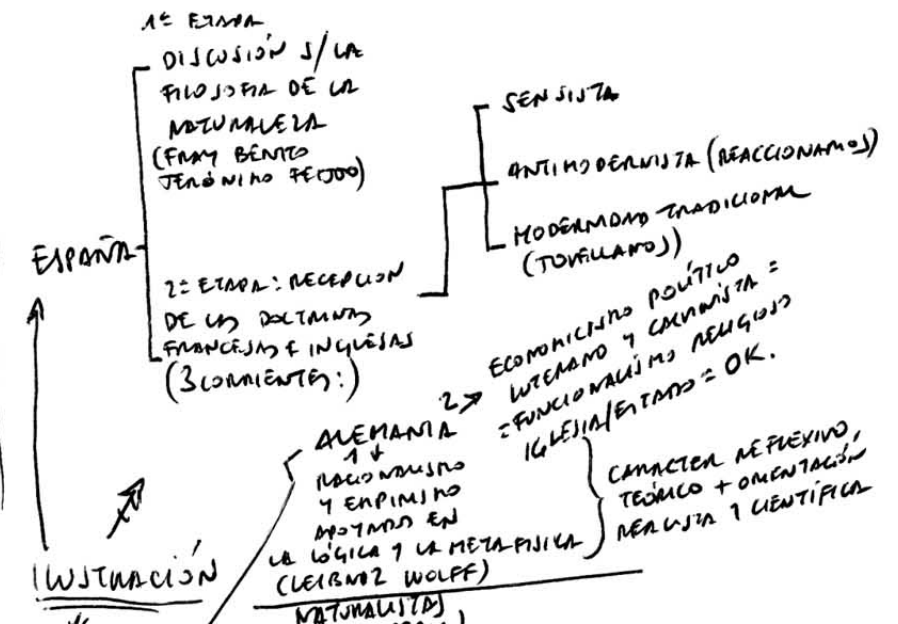 1ª ETAPA
DISCUSIÓN S/ LA
FILOSOFIA DE LA
NATURALEZA
(FRAY BENITO
JERÓNIMO FEIJOO)
ESPAÑA
2ª ETAPA: RECEPCION
DE LAS DOCTRINAS
FRANCESAS E INGLESAS
(3 CORRIENTES:)
SENSISTA
ANTIMODERNISTA (REACCIONARIOS)
MODERNIDAD TRADICIONAL
(JOVELLANOS)
ALEMANIA
1
RACIONALISMO
Y EMPIRISMO
APOYADO EN
LA LÓGICA Y LA METAFISICA
(LEIBNIZ WOLFF)
2 ECONOMICISMO POLÍTICO
LUTERANO Y CALVINISTA =
= FUNCIONALISMO RELIGIOSO
IGLESIA/ESTADO = OK.
CARACTER REFLEXIVO,
TEÓRICO + ORIENTACIÓN
REALISTA Y CIENTÍFICA
ILUSTRACIÓN
NATURALISTAS